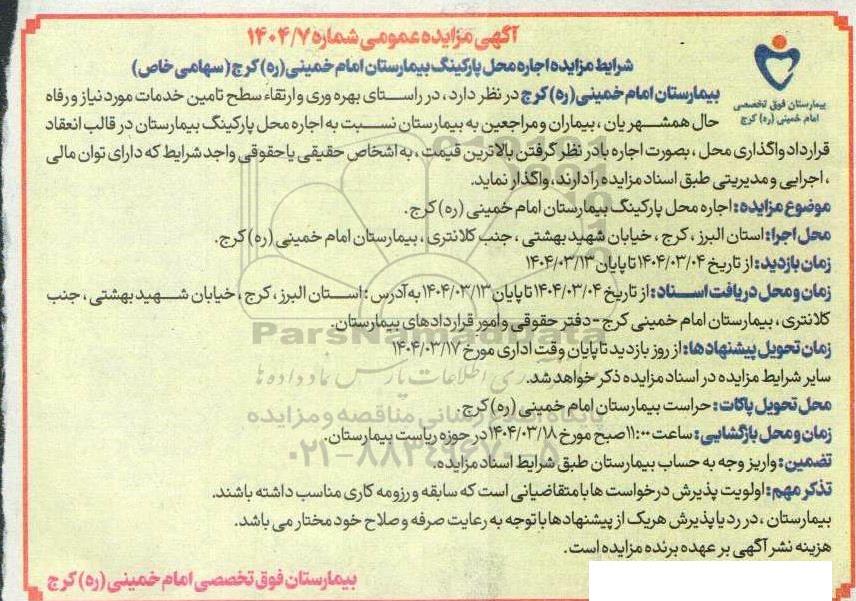 آگهی مزایده عمومی شماره ۱۴۰۴/۷
شرایط مزایده اجاره محل پارکینگ بیمارستان امام خمینی (ره) کرج (سهامی خاص)
بیمارستان فوق تخصصی
امام خمینی (ره) کرج
بیمارستان امام خمینی (ره) کرج در نظر دارد، در راستای بهره وری و ارتقاء سطح تامین خدمات مورد نیاز و رفاه
حال همشهریان، بیماران و مراجعین به بیمارستان نسبت به اجاره محل پارکینگ بیمارستان در قالب انعقاد
قرارداد واگذاری محل، بصورت اجاره با در نظر گرفتن بالاترین قیمت، به اشخاص حقیقی یا حقوقی واجد شرایط که دارای توان مالی
، اجرایی و مدیریتی طبق اسناد مزایده را دارند، واگذار نماید.
موضوع مزایده: اجاره محل پارکینگ بیمارستان امام خمینی (ره) کرج.
محل اجرا: استان البرز، کرج، خیابان شهید بهشتی، جنب کلانتری، بیمارستان امام خمینی (ره) کرج.
زمان بازدید: از تاریخ ۱۴۰۴/۰۳/۰۴ تا پایان ۱۴۰۴/۰۳/۱۳
زمان و محل دریافت اسناد: از تاریخ ۱۴۰۴/۰۳/۰۴ تا پایان ۱۴۰۴/۰۳/۱۳ به آدرس: استان البرز، کرج، خیابان شهید بهشتی، جنب
کلانتری، بیمارستان امام خمینی کرج - دفتر حقوقی و امور قراردادهای بیمارستان.
ParsNamadData
زمان تحویل پیشنهادها: از روز بازدید تا پایان وقت اداری مورخ ۱۴۰۴/۰۳/۱۷
سایر شرایط مزایده در اسناد مزایده ذکر خواهد شد.
محل تحویل پاکات: حراست بیمارستان امام خمینی (ره) کرج.
زمان و محل بازگشایی: ساعت ۱۱:۰۰ صبح مورخ ۱۴۰۴/۰۳/۱۸ در حوزه ریاست بیمارستان.
۰۲۱-۸۸۳۴۹۶۷۰-۵
تضمین: واریز وجه به حساب بیمارستان طبق شرایط اسناد مزایده.
تذکر مهم: اولویت پذیرش درخواست ها با متقاضیانی است که سابقه و رزومه کاری مناسب داشته باشند.
بیمارستان، در رد یا پذیرش هریک از پیشنهادها با توجه به رعایت صرفه و صلاح خود مختار می باشد.
هزینه نشر آگهی بر عهده برنده مزایده است.
بیمارستان فوق تخصصی امام خمینی (ره) کرج